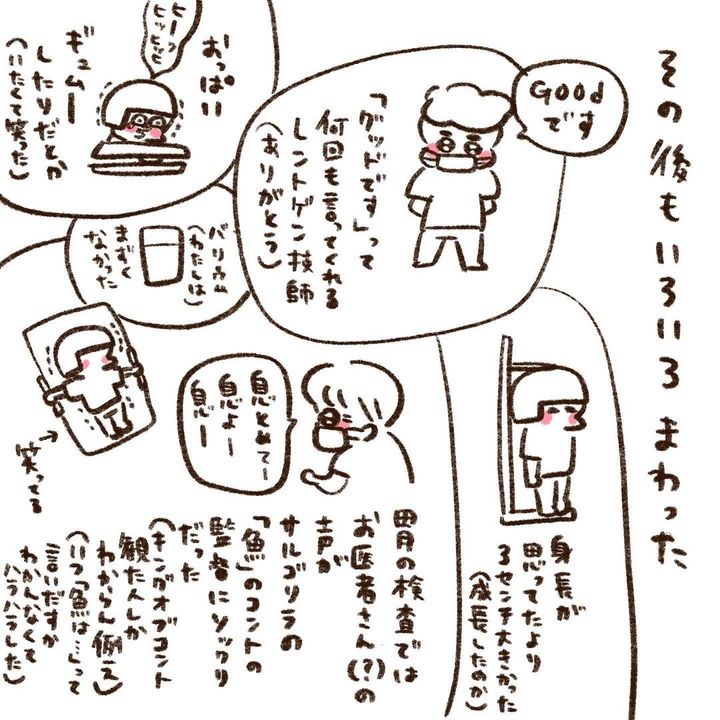 その後もいろいろまわった
身長が
思ってたより
3センチ大きかった
(成長したのか)
Good
です
「グッドです」って
何回も言ってくれる
レントゲン技師
(ありがとう)
ヒーッ
ヒッヒッヒッ
おっぱい
ギュムー
したりだとか
(いたくて笑った)
バリウム
(わたしは)
まずく
なかった
笑ってる
息とめてー
息よー
息ー
胃の検査では
お医者さん(?)の
声が
サルゴリラの
「魚」のコントの
監督にソックリ
だった
(キングオブコント
観た人しか
わからん例え)
(いつ「魚は…」って
言いだすか
わかんなくて
ハラハラした)